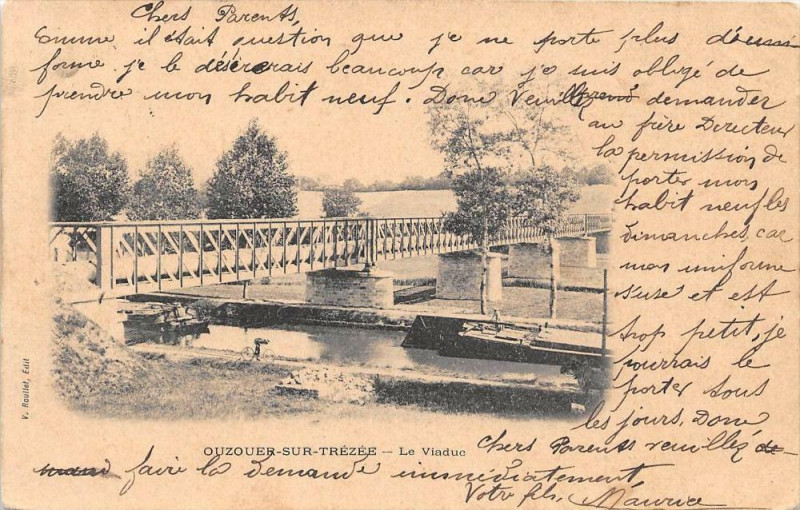 Chers Parents,
Comme il était question que je ne porte plus d'uni
forme je le désirerais beaucoup car je suis obligé de
prendre mon habit neuf. Donc Veuillez demander
au frère Directeur
la permission de
porter mon
habit neuf les
dimanches, car
mon uniforme
s'use et est
trop petit, je
pourrais le
porter tous
les jours. Donc
Chers Parents veuillez
faire la demande immédiatement,
Votre fils, Maurice
OUZOUER-SUR-TRÉZÉE — Le Viaduc
V. Roullet, Edit